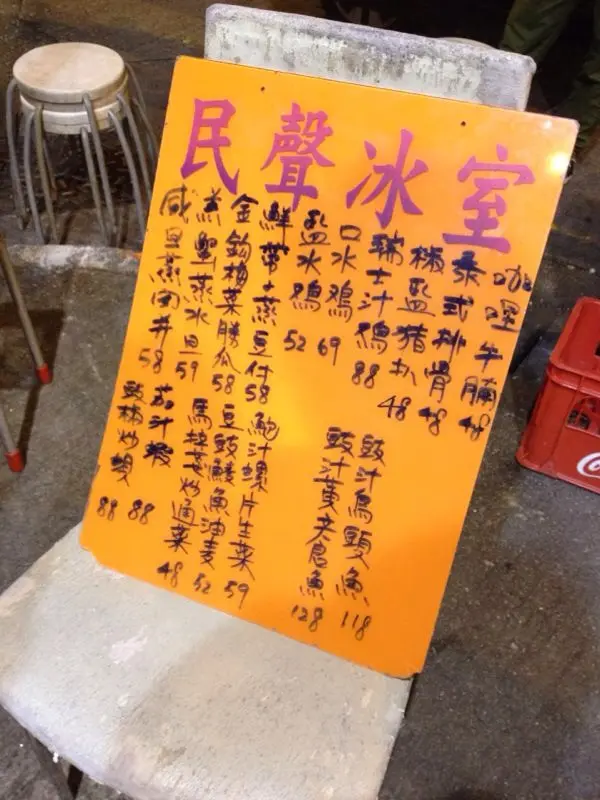 民聲冰室
咖哩牛腩 48
泰式排骨 48
椒監猪扒 48
瑞士汁鷄 88
口水鷄 69
監水鷄 52
鮮帶子蒸豆付 58
金鈎梅菜勝瓜 58
羔蟹蒸水旦 59
咸旦蒸肉并 58
豉汁烏頭魚 118
豉汁黄立倉魚 128
鮑汁螺片生菜 59
豆豉鯪魚油麦 52
馬拉盞炒通菜 48
茄汁蝦 88
豉椒炒蜆 88